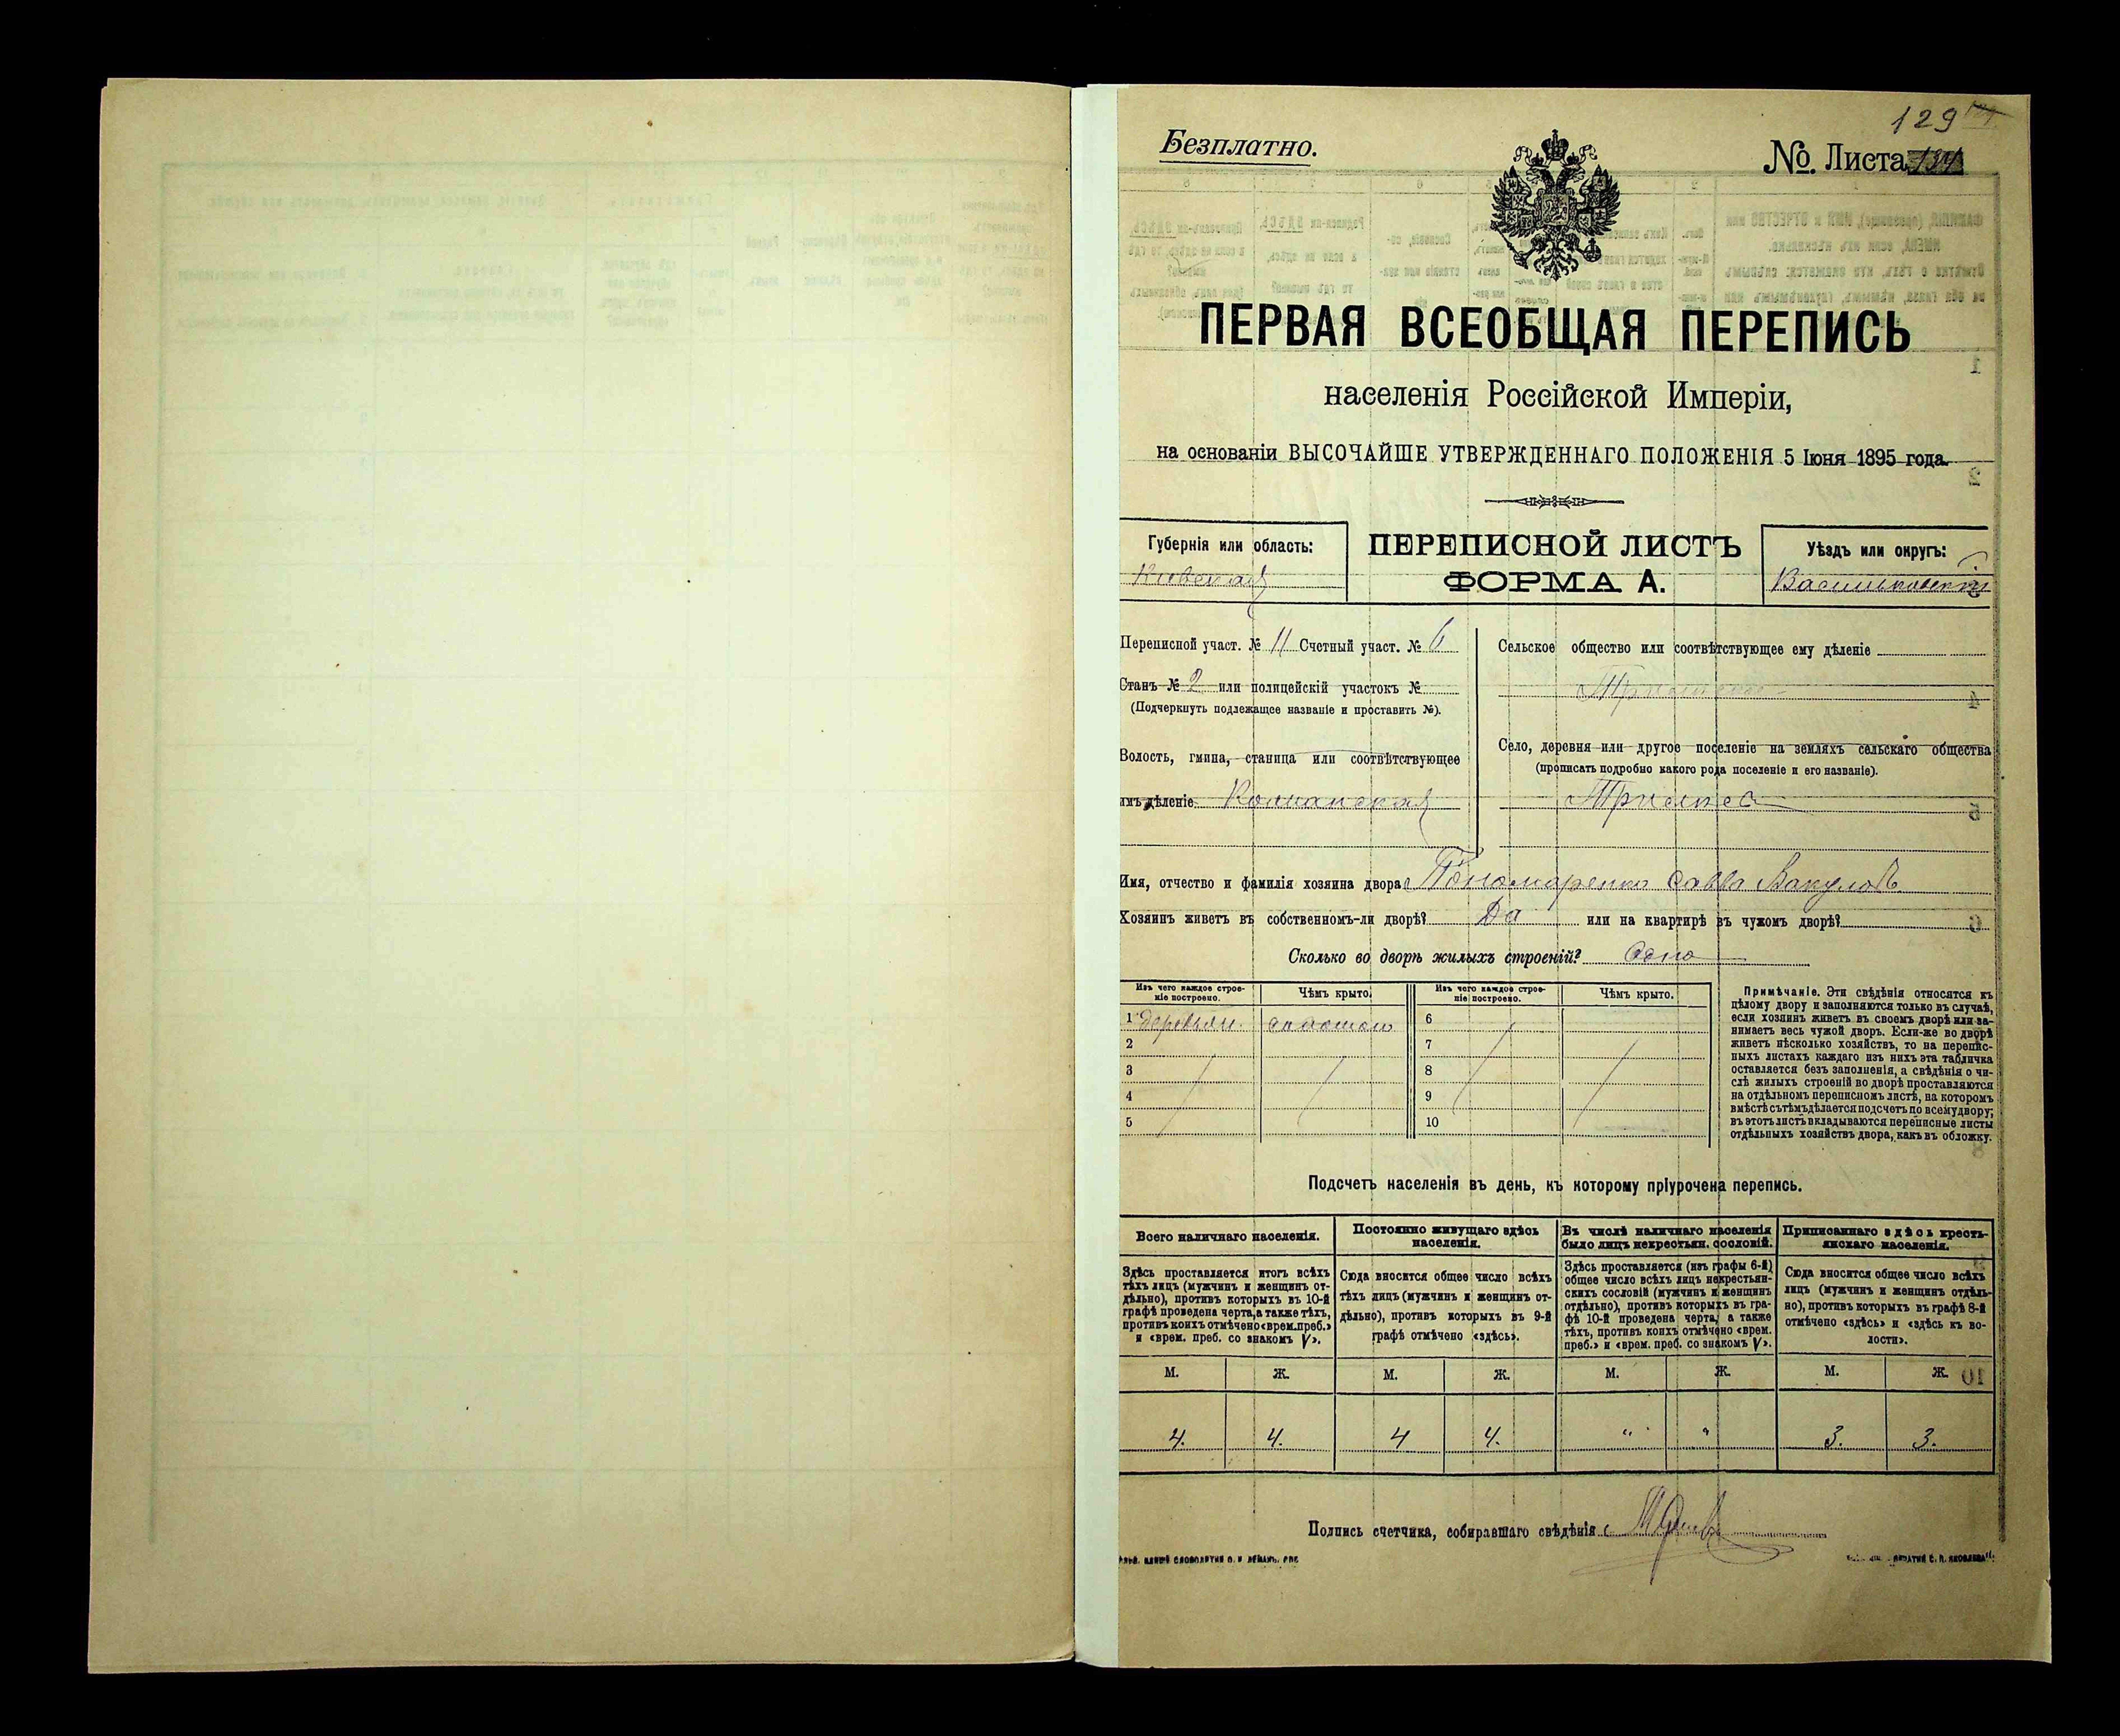 129
Безплатно.
№ Листа
ПЕРВАЯ ВСЕОБЩАЯ ПЕРЕПИСЬ
населенія Россійской Имперіи,
на основаніи ВЫСОЧАЙШЕ УТВЕРЖДЕННАГО ПОЛОЖЕНІЯ 5 Іюня 1895 года.
Губернія или область:
Кіевская
ПЕРЕПИСНОЙ ЛИСТЪ
ФОРМА А.
Уѣздъ или округъ:
Васильковскій
Переписной участ. № 11 Счетный участ. № 6
Станъ № 2 или полицейскій участокъ №
(Подчеркнуть подлежащее названіе и проставить №).
Волость, гмина, станица или соотвѣтствующее
имъ дѣленіе
Сельское общество или соотвѣтствующее ему дѣленіе
Село, деревня или другое поселеніе на земляхъ сельскаго общества
(прописать подробно какого рода поселеніе и его названіе).
Имя, отчество и фамилія хозяина двора Пономаренко Савва Вакуловъ
Хозяинъ живетъ въ собственномъ-ли дворѣ? Да или на квартирѣ въ чужомъ дворѣ?
Сколько во дворѣ жилыхъ строеній? Одно
Изъ чего каждое строе-
ніе построено.
Чѣмъ крыто.
Изъ чего каждое строе-
ніе построено.
Чѣмъ крыто.
1 деревян. соломою 6
2 7
3 8
4 9
5 10
Примѣчаніе. Эти свѣдѣнія относятся къ
цѣлому двору и заполняются только въ случаѣ,
если хозяинъ живетъ въ своемъ дворѣ или за-
нимаетъ весь чужой дворъ. Если-же во дворѣ
живетъ нѣсколько хозяйствъ, то на перепис-
ныхъ листахъ каждаго изъ нихъ эта табличка
оставляется безъ заполненія, а свѣдѣнія о чи-
слѣ жилыхъ строеній во дворѣ проставляются
на отдѣльномъ переписномъ листѣ, на которомъ
вмѣстѣ съ тѣмъ дѣлается подсчетъ по всему двору;
въ этотъ листъ вкладываются переписные листы
отдѣльныхъ хозяйствъ двора, какъ въ обложку.
Подсчетъ населенія въ день, къ которому пріурочена перепись.
Всего наличнаго населенія.
Постоянно живущаго здѣсь
населенія.
Въ числѣ наличнаго населенія
было лицъ некрестьян. сословій.
Приписаннаго здѣсь кресть-
янскаго населенія.
Здѣсь проставляется итогъ всѣхъ
тѣхъ лицъ (мужчинъ и женщинъ от-
дѣльно), противъ которыхъ въ 10-й
графѣ проведена черта, а также тѣхъ,
противъ коихъ отмѣчено «врем. преб.»
и «врем. преб. со знакомъ V».
Сюда вносится общее число всѣхъ
тѣхъ лицъ (мужчинъ и женщинъ от-
дѣльно), противъ которыхъ въ 9-й
графѣ отмѣчено «здѣсь».
Здѣсь проставляется (изъ графы 6-й)
общее число всѣхъ лицъ некрестьян-
скихъ сословій (мужчинъ и женщинъ
отдѣльно), противъ которыхъ въ гра-
фѣ 10-й проведена черта, а также
тѣхъ, противъ коихъ отмѣчено «врем.
преб.» и «врем. преб. со знакомъ V».
Сюда вносится общее число всѣхъ
лицъ (мужчинъ и женщинъ отдѣль-
но), противъ которыхъ въ графѣ 8-й
отмѣчено «здѣсь» и «здѣсь къ во-
лости».
М. Ж. М. Ж. М. Ж. М. Ж.
4. 4. 4 4. " " 3. 3.
Подпись счетчика, собиравшаго свѣдѣнія